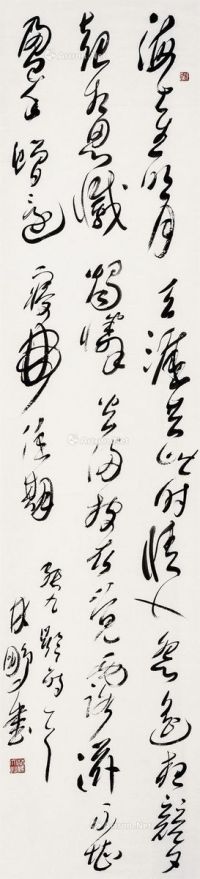 海上生明月天涯共此時情人怨遙夜竟夕
起相思滅燭憐光滿披衣覺露滋不堪
盈手贈還寢夢佳期
張九齡詩
林鵬書